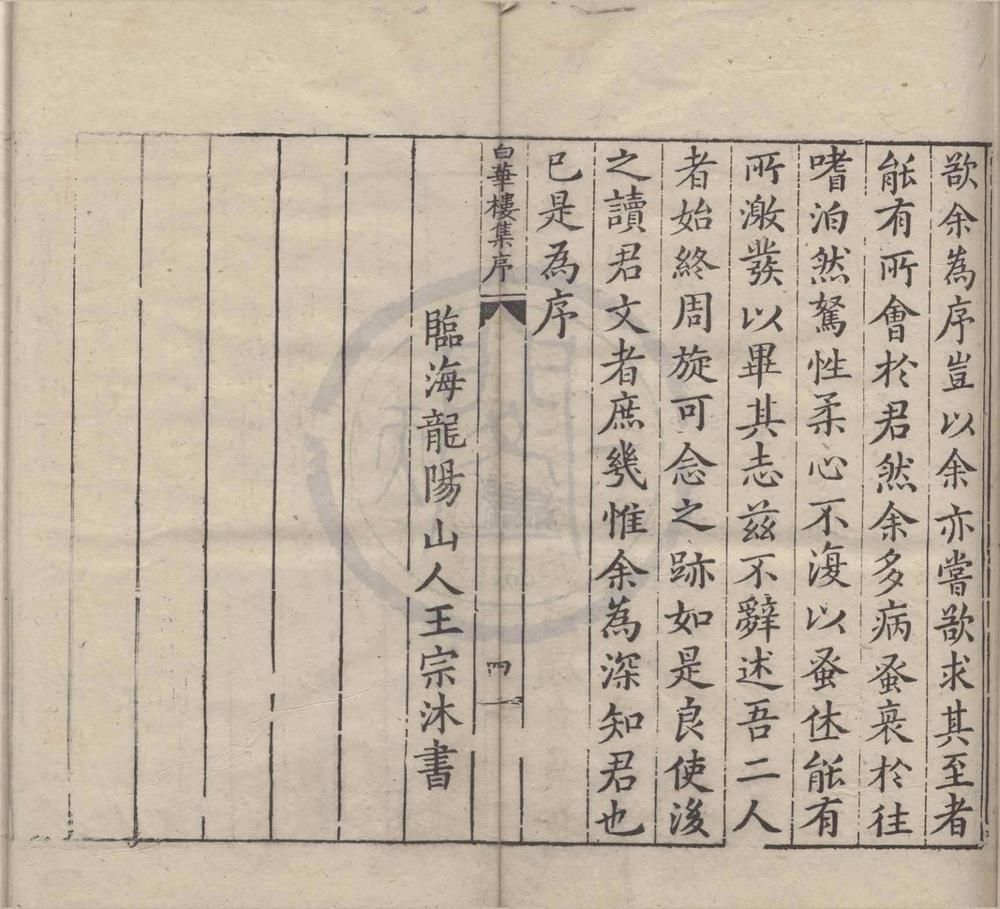 欲余為序豈以余亦嘗欲求其至者
能有所會於君然余多病蚤衰於往
嗜泊然駑性柔心不復以蚤休能有
所激發以畢其志茲不辭述吾二人
者始終周旋可念之跡如是良使後
之讀君文者庶幾惟余為深知君也
已是為序
白華樓集序
四
臨海龍陽山人王宗沐書